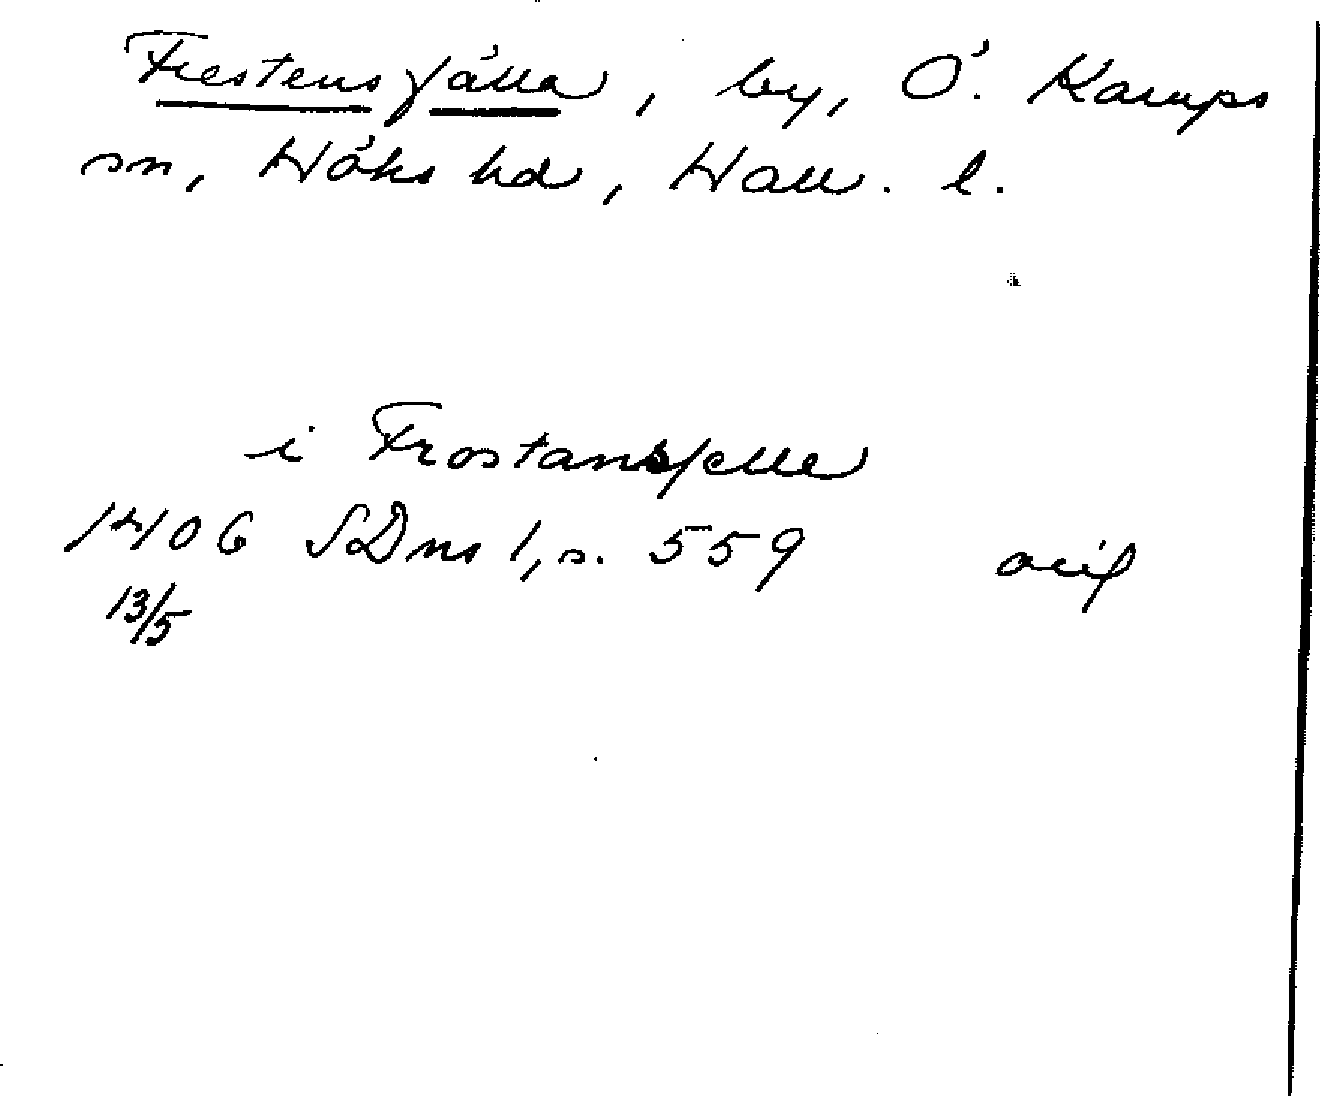 Frestensfälla, by, Ö. Karups
sn, Höks hd, Hall. l.
i Frostansfelle
1406 SDns 1, s. 559 avif
13/5